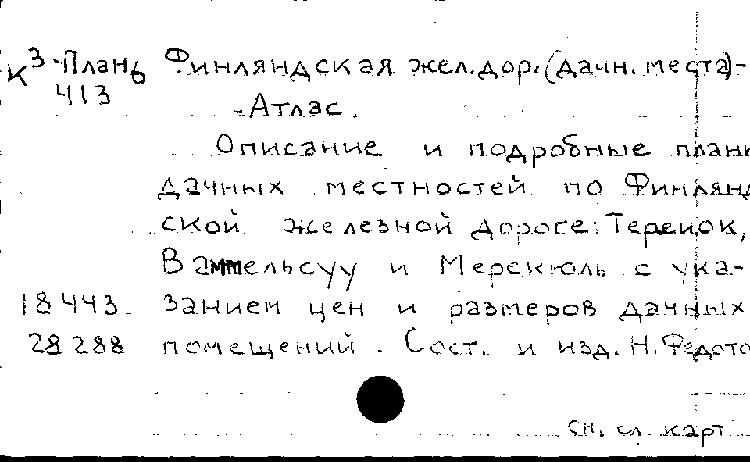 К3-Планъ Финляндская жел.дор.(дачн. места)-
413 -Атлас.
Описание и подробные план
дачных местностей по Финлянд
ской железной дороге: Териок,
Ваммельсуу и Мерекюль с ука-
18443 занием цен и размеров дачных
28288 помещений. Сост. и изд. Н. Федото
см. сл. карт